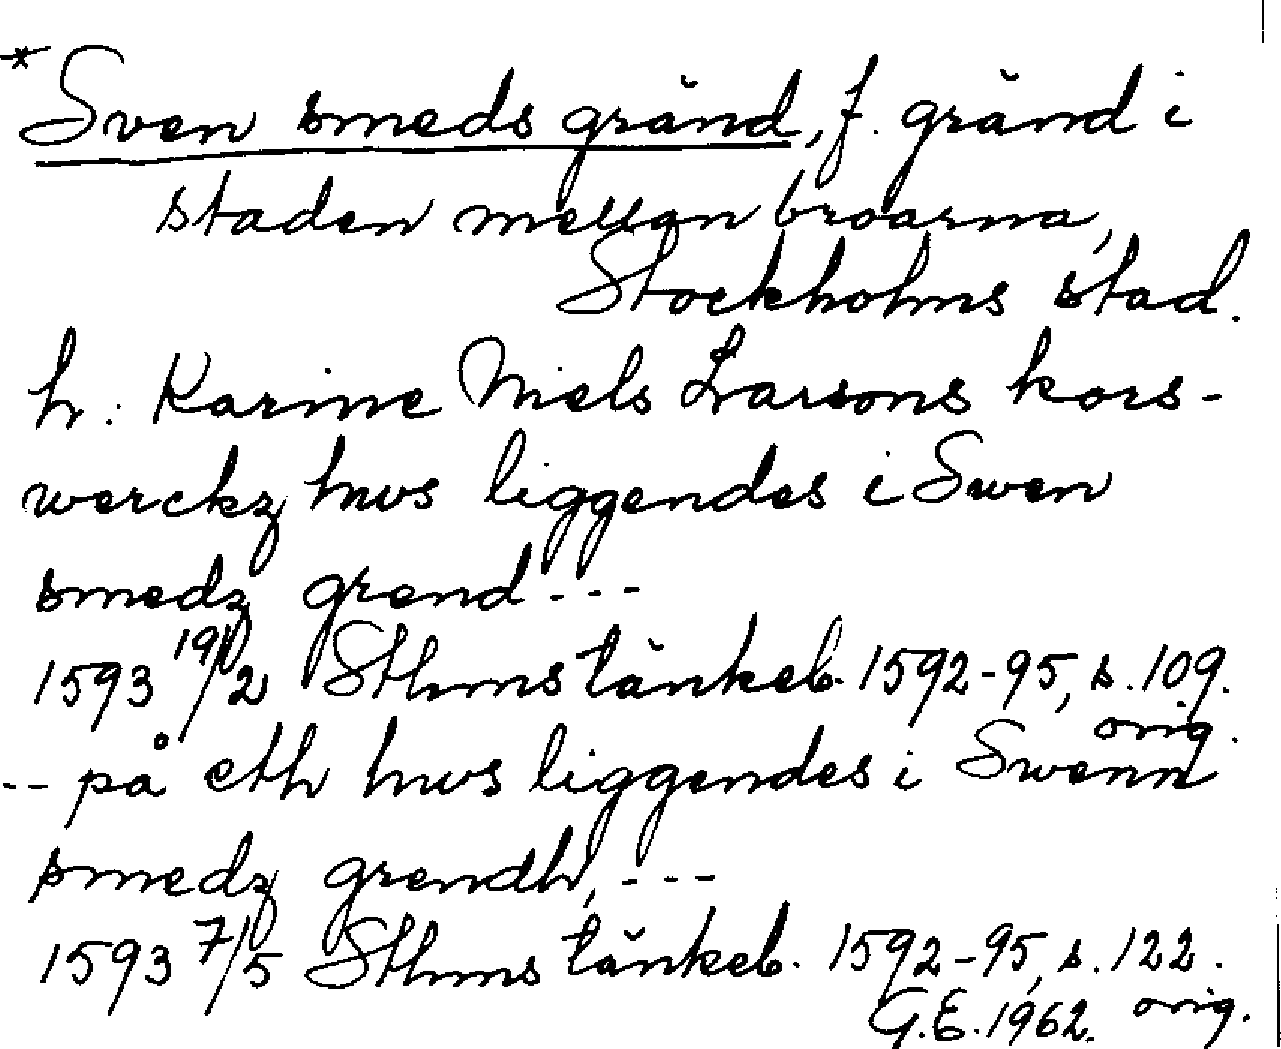 * Sven smeds gränd, f. gränd i
staden mellan broarna,
Stockholms stad.
h. Karine Niels Larsons kors-
werckz hws liggendes i Swen
smedz grend ---
1593 19/2 Sthms tänkeb. 1592-95, s. 109.
orig.
-- på eth hws liggendes i Swenn
smedz grendh, ---
1593 7/5 Sthms tänkeb. 1592-95, s. 122.
G.E. 1962. orig.